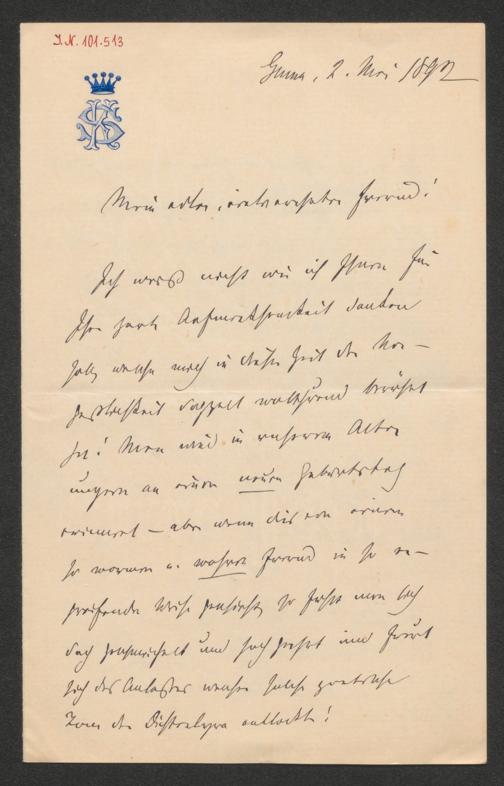 J.N. 101.513
KS
2. Mai 1892
Mein edler, hochverehrter Freund!
Ich weiß nicht wie ich Ihnen für
Ihre zarte Aufmerksamkeit danken
soll, welche mich in dieser Zeit der
doppelt wohlthuend berührt
hat! Man wird in unserem Alter
ungern an einen neuen Geburtstag
erinnert – aber wenn dies von einem
so warmen u. wahren Freund in so er-
greifender Weise geschieht, so fühlt man sich
doch geschmeichelt und hochgeehrt und freut
sich des Anlasses welcher solche poetische
Töne der Dichterlyra entlockte!